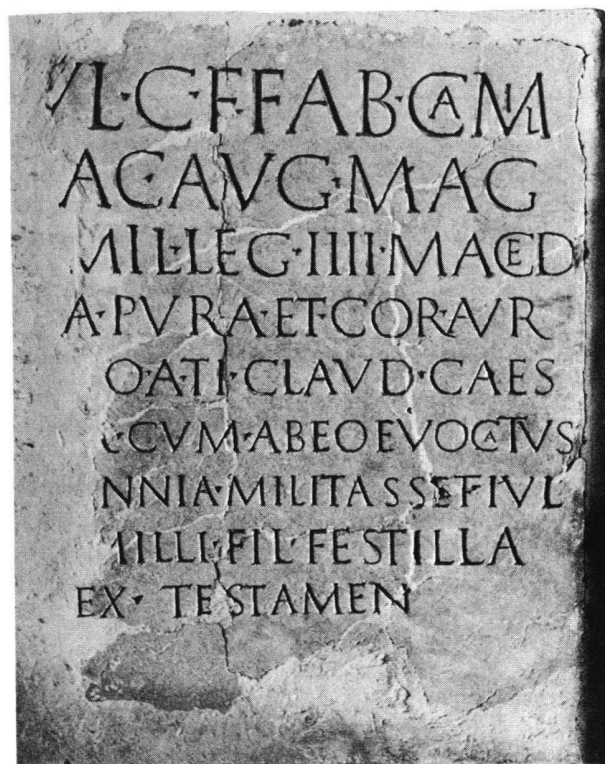 VL·C·F·FAB·CAMIL
AC·AVG·MAG
MIL·LEG·IIII·MACED
A·PVRA·ET·COR·AVR
O·A·TI·CLAVD·CAES
CVM·AB EO EVOCATVS
NNIA·MILITASSET·IVL
MILLI·FIL·FESTILLA
EX·TESTAMEN